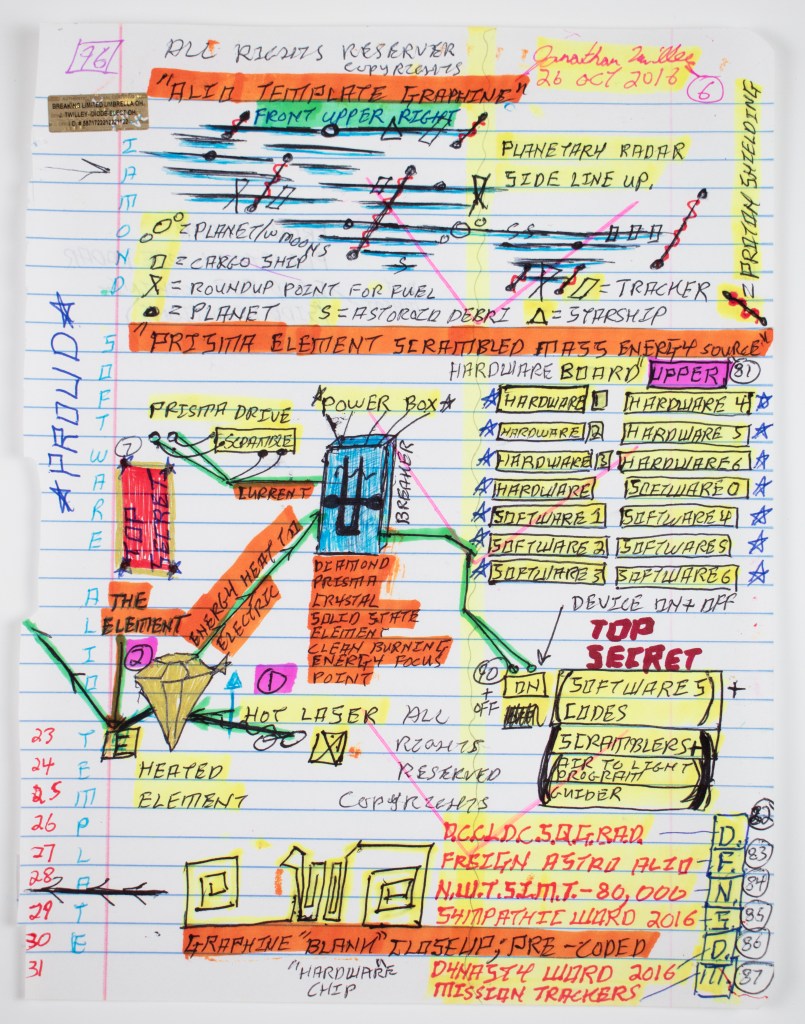 96
ALL RIGHTS RESERVER
COPYRIGHTS
26 OCT 2016
6
"ALIO TEMPLATE GRAPHINE"
FRONT UPPER RIGHT
PLANETARY RADAR
SIDE LINE UP.
= PROTON SHIELDING
= PLANET/W MOONS
= CARGO SHIP
= ROUNDUP POINT FOR FUEL
= TRACKER
= PLANET S = ASTOROID DEBRI = STARSHIP
"PRISMA ELEMENT SCRAMBLED MASS ENERGY SOURCE"
DIAMOND SOFTWARE ALIO TEMPLATE
*PROWD*
HARDWARE BOARD "UPPER" 81
HARDWARE 1 HARDWARE 4
HARDWARE 2 HARDWARE 5
HARDWARE 3 HARDWARE 6
HARDWARE SOFTWARE 0
SOFTWARE 1 SOFTWARE 4
SOFTWARE 2 SOFTWARE 5
SOFTWARE 3 SOFTWARE 6
PRISMA DRIVE
SCRAMBLE
POWER BOX
BREAKER
CURRENT
7
TOP SECRET
ENERGY HEAT TO ELECTRIC
DIAMOND
PRISMA
CRYSTAL
SOLID STATE
ELEMENT
CLEAN BURNING
ENERGY FOCUS
POINT
THE
ELEMENT
2
1
E
HOT LASER
HEATED
ELEMENT
ALL
RIGHTS
RESERVED
COPYRIGHTS
DEVICE ON + OFF
TOP
SECRET
80
+
OFF
ON
SOFTWARE S
CODES
+
SCRAMBLERS +
AIR TO LIGHT
PROGRAM
GUIDER
23
24
25
26
27
28
29
30
31
D.C.C.L.D.C.S.Q.G.RAD. D. 82
FREIGN ASTRO ALIO F. 83
N.W.T.S.I.M.T.-80,000 N. 84
SYMPATHIC WARD 2016 S. 85
D. 86
DYNASTY WARD 2016
MISSION TRACKERS M. 87
GRAPHINE "BLANK" CLOSEUP; PRE-CODED
"HARDWARE"
CHIP